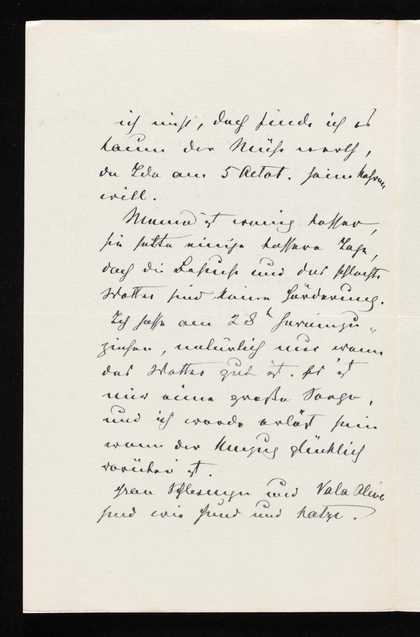 ich nicht, doch finde ich es
kaum der Mühe werth,
da Ida am 5 Octob. heimkehren
will.
Mama ist wenig besser,
sie hatte einige bessere Tage,
doch die Besuche und das schlechte
Wetter sind keine Förderung.
Ich hoffe am 28t hereinzu-
ziehen, natürlich nur wenn
das Wetter gut ist. Es ist
mir eine große Sorge,
und ich werde erlöst sein
wenn der Umzug glücklich
vorüber ist.
Frau und
sind wie Hund und Katze.